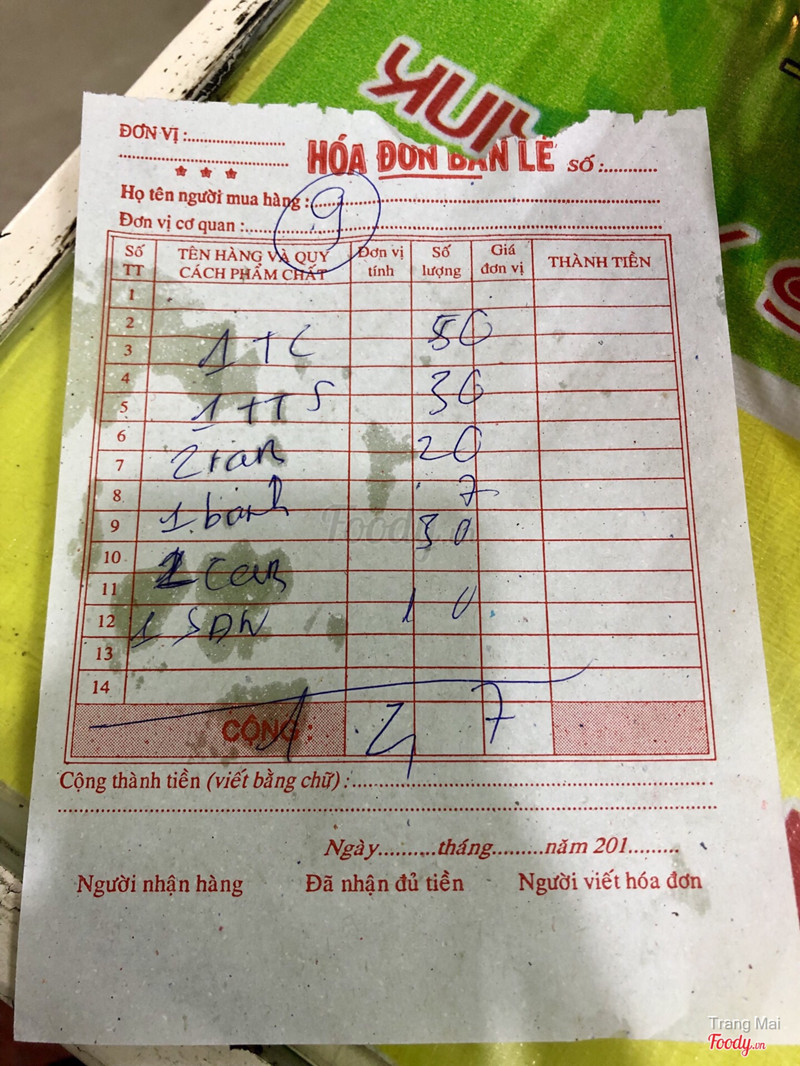 ĐƠN VỊ :
HÓA ĐƠN BÁN LẺ SỐ :
Họ tên người mua hàng :
9
Đơn vị cơ quan :
Số TT TÊN HÀNG VÀ QUY CÁCH PHẨM CHẤT Đơn vị tính Số lượng Giá đơn vị THÀNH TIỀN
1
2
3 1 TC 50
4
5 1 TTS 30
6
7 2 ran 20
8 7
9 1 banh 30
10
11 2 can
12 1 SAN 10
13
14
CỘNG : 1 4 7
Cộng thành tiền (viết bằng chữ) :
Ngày tháng năm 201
Người nhận hàng Đã nhận đủ tiền Người viết hóa đơn
Foody.vn
Trang Mai
Foody.vn